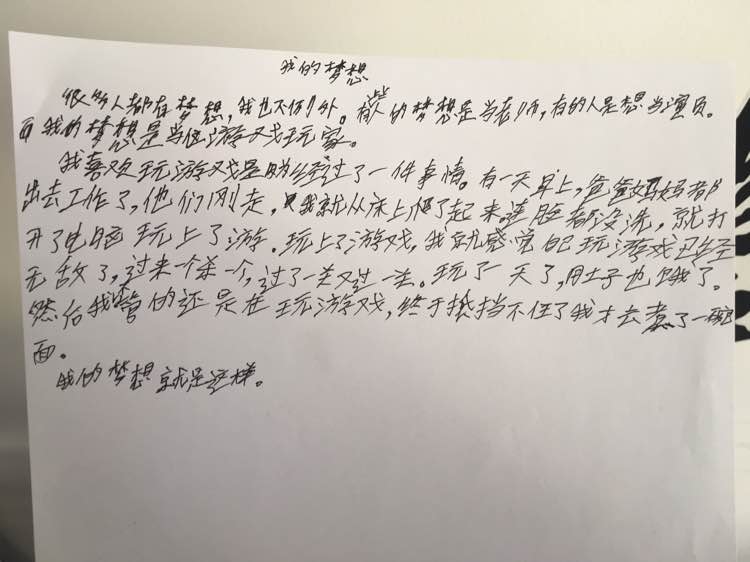 我的梦想
很多人都有梦想，我也不例外。有些人的梦想是当老师，有的人是想当演员。
而我的梦想是当位游戏玩家。
我喜欢玩游戏是的经过了一件事情。有一天早上，爸爸妈妈都
出去工作了，他们刚走，我就从床上爬了起来。连脸都没洗，就打
开了电脑玩上了游。玩上了游戏，我就感觉自己玩游戏已经
无敌了，过来一个杀一个，过了一关又过一关。玩了一天了，肚子也饿了。
然后我管的还是在玩游戏，终于抵挡不住了我才去煮了一碗
面。
我的梦想就是这样。